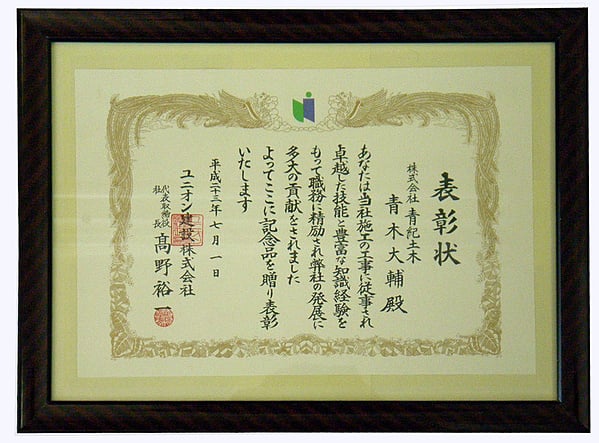 表彰状
株式会社 青紀土木
青木大輔殿
あなたは当社施工の工事に従事され
卓越した技能と豊富な知識経験を
もって職務に精励され弊社の発展に
多大の貢献をされました
よってここに記念品を贈り表彰
いたします
平成二十三年七月一日
ユニオン建設株式会社
代表取締役
社長
髙野裕一